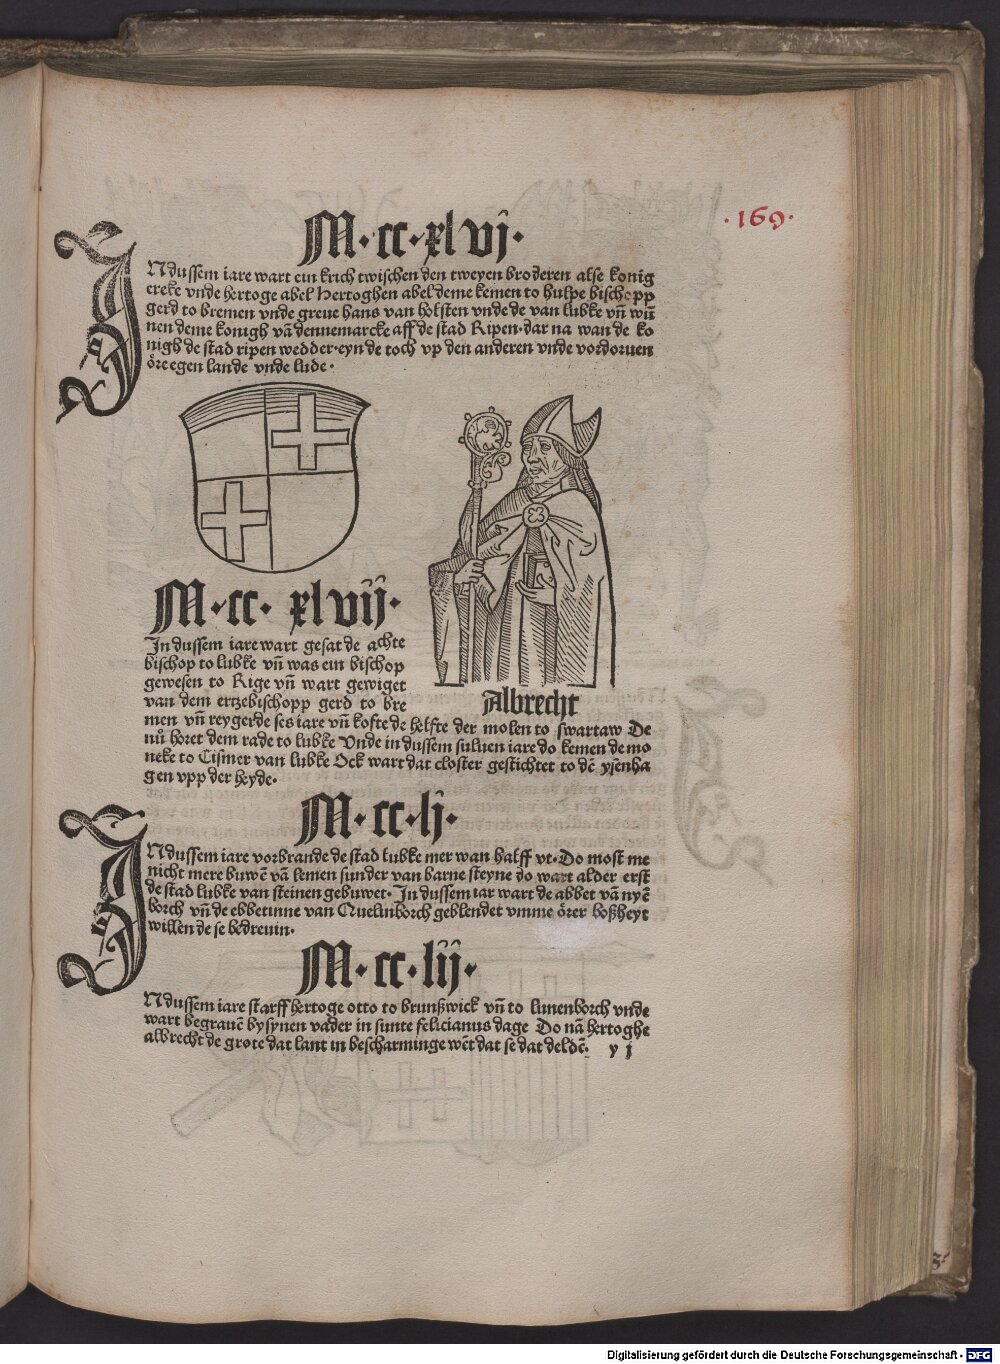 ·169·
M·cc·xlvj·
INdussem iare wart ein krich twischen den tweyen broderen alse konig
ereke vnde hertoge abel Hertoghen abel deme kemen to hulpe bischopp
gerd to bremen vnde greue hans van holsten vnde de van lubke vñ wũ
nen deme konigh vã dennemarcke aff de stad Ripen·dar na wan de ko
nigh de stad ripen wedder·eyn de toch vp den anderen vnde vordoruen
öre egen lande vnde lude·
M·cc·xlvij·
In dussem iare wart gesat de achte
bischop to lubke vñ was ein bischop
gewesen to Rige vñ wart gewiget
van dem ertzebischopp gerd to bre
Albrecht
men vñ reygerde ses iare vñ kofte de helfte der molen to swartaw De
nů horet dem rade to lubke Vnde in dussem suluen iare do kemen de mo
neke to Cismer van lubke Ock wart dat closter gestichtet to dẽ ysenha
gen vpp der heyde·
M·cc·lj·
INdussem iare vorbrande de stad lubke mer wan halff vt·Do most me
nicht mere buwẽ vã lemen sunder van barne steyne do wart alder erst
de stad lubke van steinen gebuwet·In dussem iar wart de abbet vã nyẽ
borch vñ de ebbetinne van Quelinborch geblendet vmme örer boßheyt
willen de se bedreuin·
M·cc·lij·
INdussem iare starff hertoge otto to brunßwick vñ to lunenborch vnde
wart begrauẽ by synen vader in sunte felicianus dage Do nã hertoghe
albrecht de grote dat lant in bescharminge wẽt dat se dat deldẽ· y j
Digitalisierung gefördert durch die Deutsche Forschungsgemeinschaft - DFG